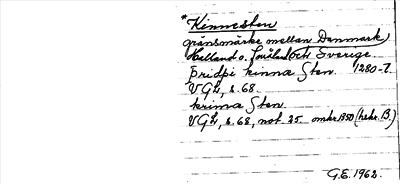 *Kinnesten
gränsmärke mellan Danmark
Halland o. Småland och Sverige.
þriþi kinna Sten. 1280-t.
VGL, s. 68.
kinna Sten
VGL, s. 68, not. 25 omkr 1350 (hskr. B.)
G.E. 1962.